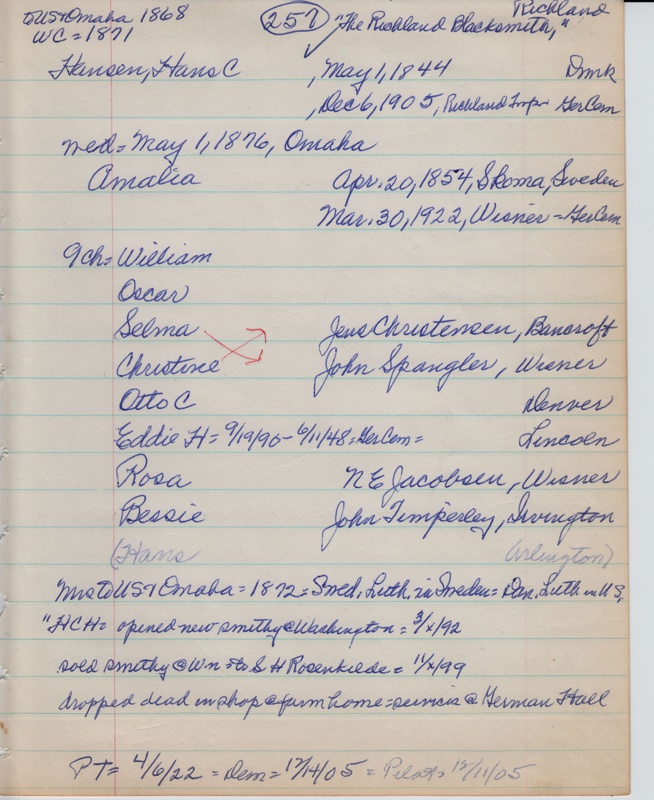 to US & Omaha 1868 (257) Richland
WC = 1871 "The Richland Blacksmith,"
Hansen, Hans C , May 1, 1844 Dmrk
, Dec 6, 1905, Richland Twp - Ger Cem
wed = May 1, 1876, Omaha
Amalia Apr. 20, 1854, Skoma, Sweden
Mar. 30, 1922, Wisner = Ger Cem
9 ch = William
Oscar
Selma Jens Christensen, Bancroft
Christine John Spangler, Wisner
Otto C Denver
Eddie H = 9/19/90 - 6/11/48 = Ger Cem = Lincoln
Rosa N E Jacobsen, Wisner
Bessie John Timperley, Irvington
(Hans Arlington)
Mrs to US & Omaha = 1872 = Swed. Luth. in Sweden = Dan. Luth in U S,
"HCH = opened new smithy @ Washington = 3/x/92
sold smithy @ Wn = to S H Rosenkilde = 11/x/99
dropped dead in shop @ farm home = services @ German Hall
PT = 4/6/22 = Dem = 12/14/05 = Pilot = 12/11/05